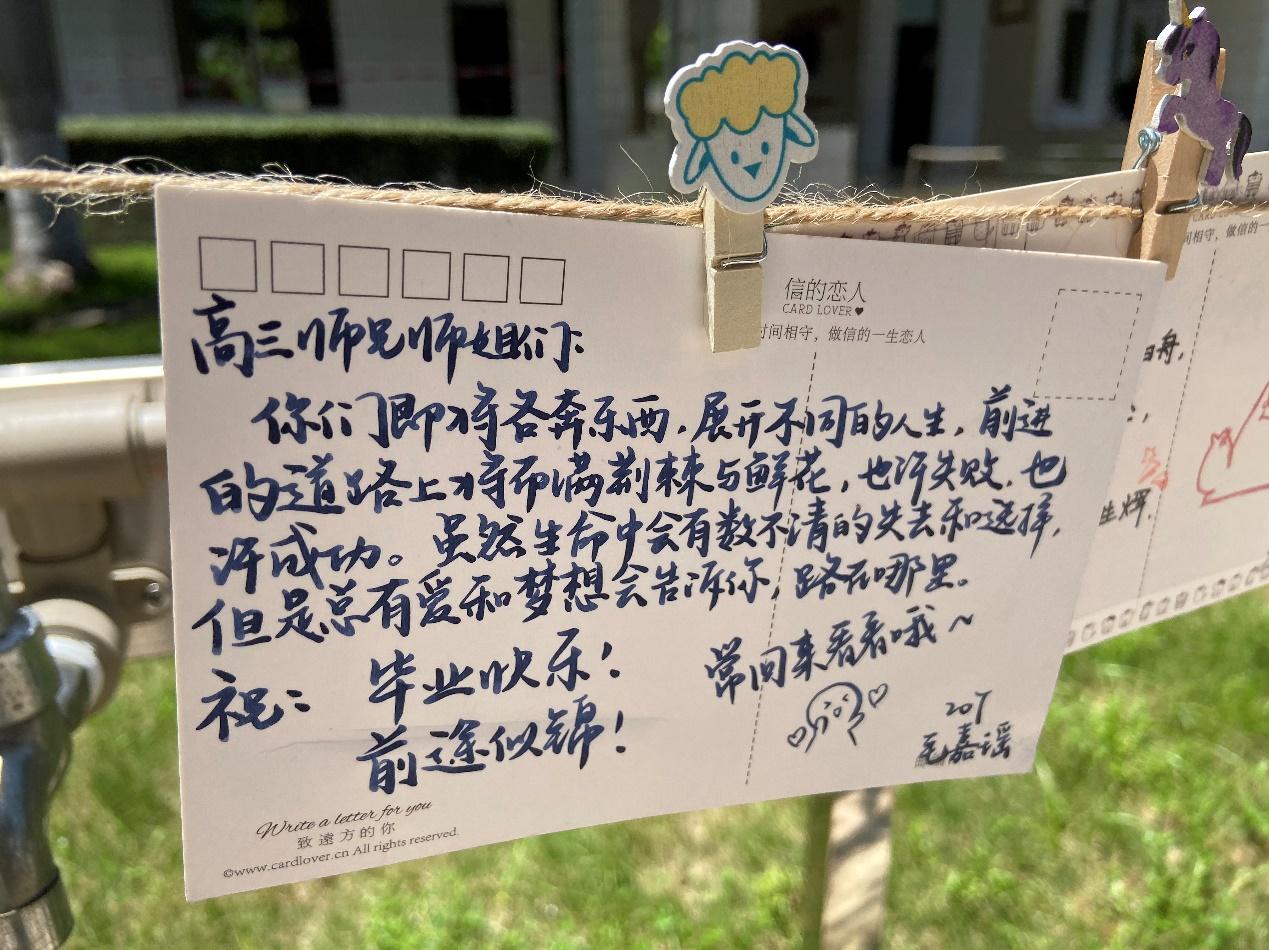 信的恋人
CARD LOVER♥
时间相守，做信的一生恋人
高三师兄师姐们:
你们即将各奔东西，展开不同的人生，前进
的道路上将布满荆棘与鲜花，也许失败，也
许成功。虽然生命中会有数不清的失去和选择，
但是总有爱和梦想会告诉你，路在哪里。
祝: 毕业快乐!
前途似锦!
常回来看看哦~
毛嘉谣
Write a letter for you
致遠方的你
©www.cardlover.cn All rights reserved.
间相守，做信的一
舟，
生辉，